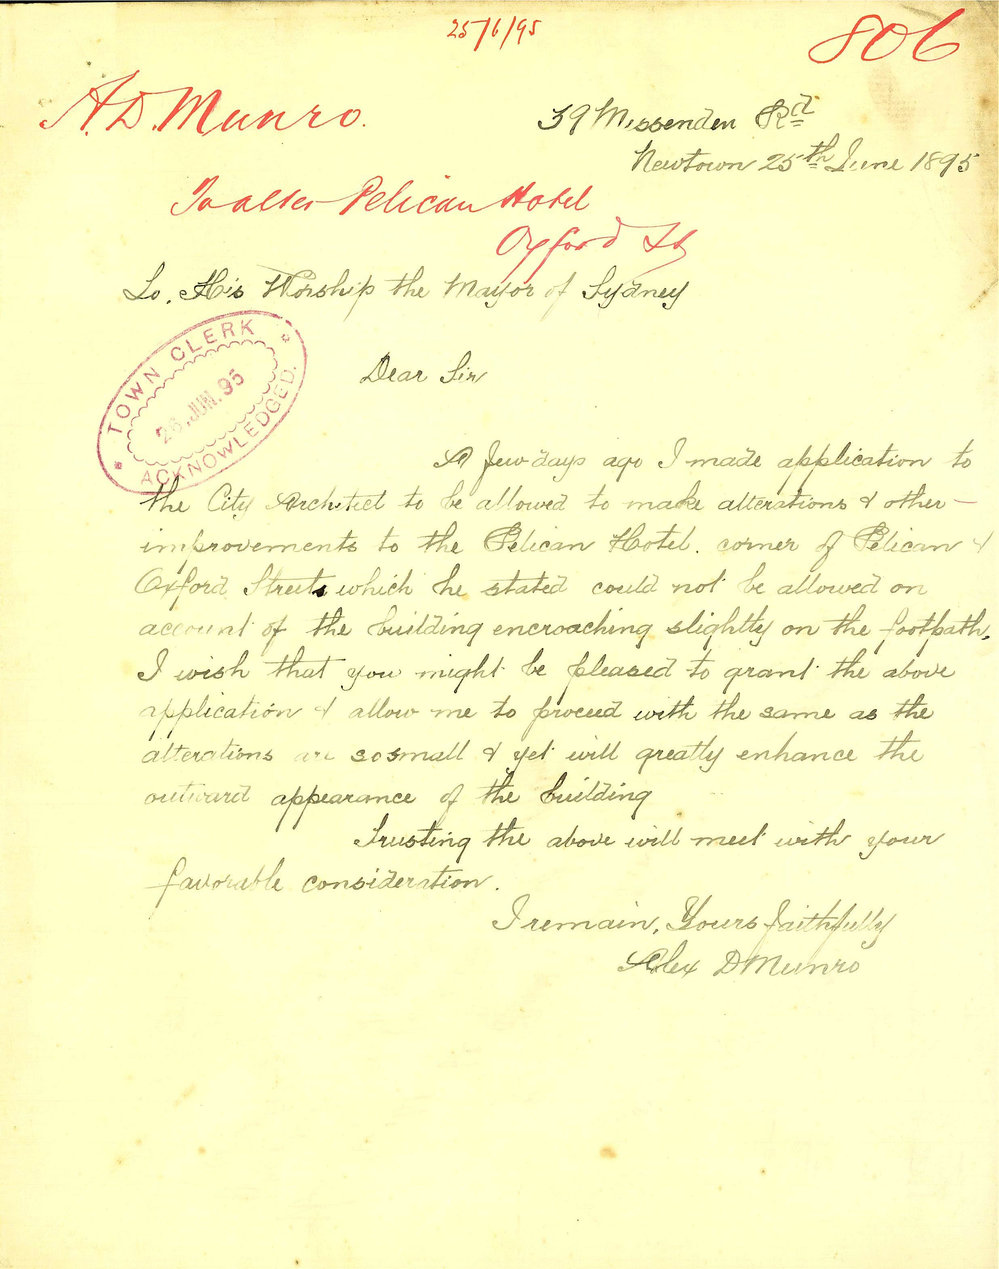 25/6/95
806
A. D. Munro.
39 Missenden Rd
Newtown 25th June 1895
To alter Pelican Hotel
Oxford St
To. His Worship the Mayor of Sydney
TOWN CLERK
26 JUN. 95
ACKNOWLEDGED.
Dear Sir
A few days ago I made application to
the City Architect to be allowed to make alterations & other-
improvements to the Pelican Hotel. corner of Pelican &
Oxford Streets which he stated could not be allowed on
account of the building encroaching slightly on the footpath,
I wish that you might be pleased to grant the above
application & allow me to proceed with the same as the
alterations are so small & yet will greatly enhance the
outward appearance of the building
Trusting the above will meet with your
favorable consideration.
I remain, Yours faithfully
Alex D Munro